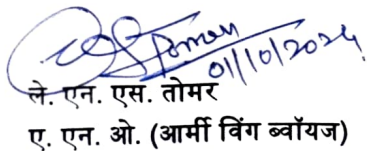 01/10/2024
ले. एन. एस. तोमर
ए. एन. ओ. (आर्मी विंग ब्वॉयज)